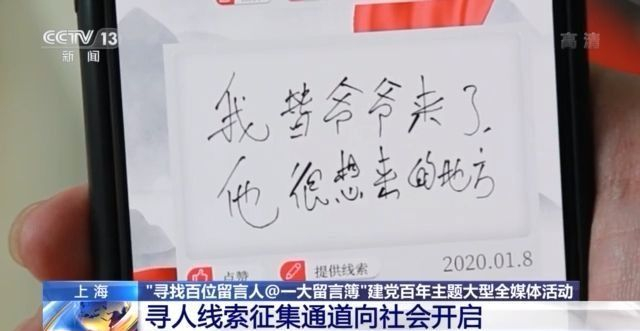 CCTV 13
新闻
高清
我替爷爷来了.
他很想来的地方
点赞
提供线索
2020.01.8
上海
"寻找百位留言人@一大留言簿"建党百年主题大型全媒体活动
寻人线索征集通道向社会开启